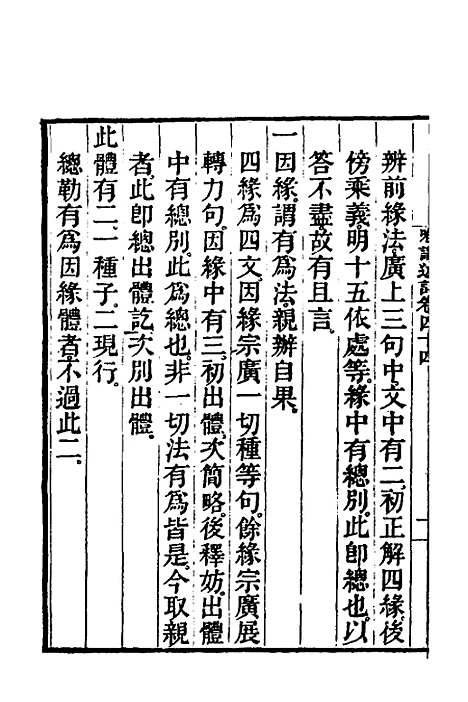 辨前緣法廣上三句中文中有二初正解四緣後
傍乘義明十五依處等緣中有總別此卽總也以
答不盡故有且言
一因緣謂有爲法親辦自果
四緣爲四文因緣宗廣一切種等句餘緣宗廣展
轉力句因緣中有三初出體次簡略後釋妨出體
中有總別此爲總也非一切法有爲皆是今取親
者此卽總出體訖次別出體
此體有二一種子二現行
總勒有爲因緣體者不過此二
卷四十四